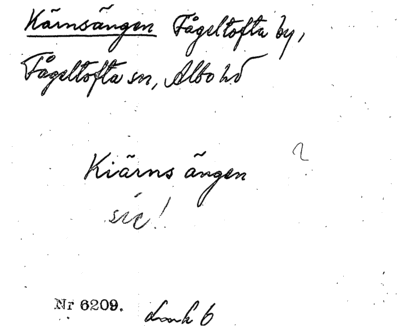 Kärnsängen Fågeltofta by,
Fågeltofta sn, Albo hd
?
Kiärns ängen
sic!
Nr 6209.
6